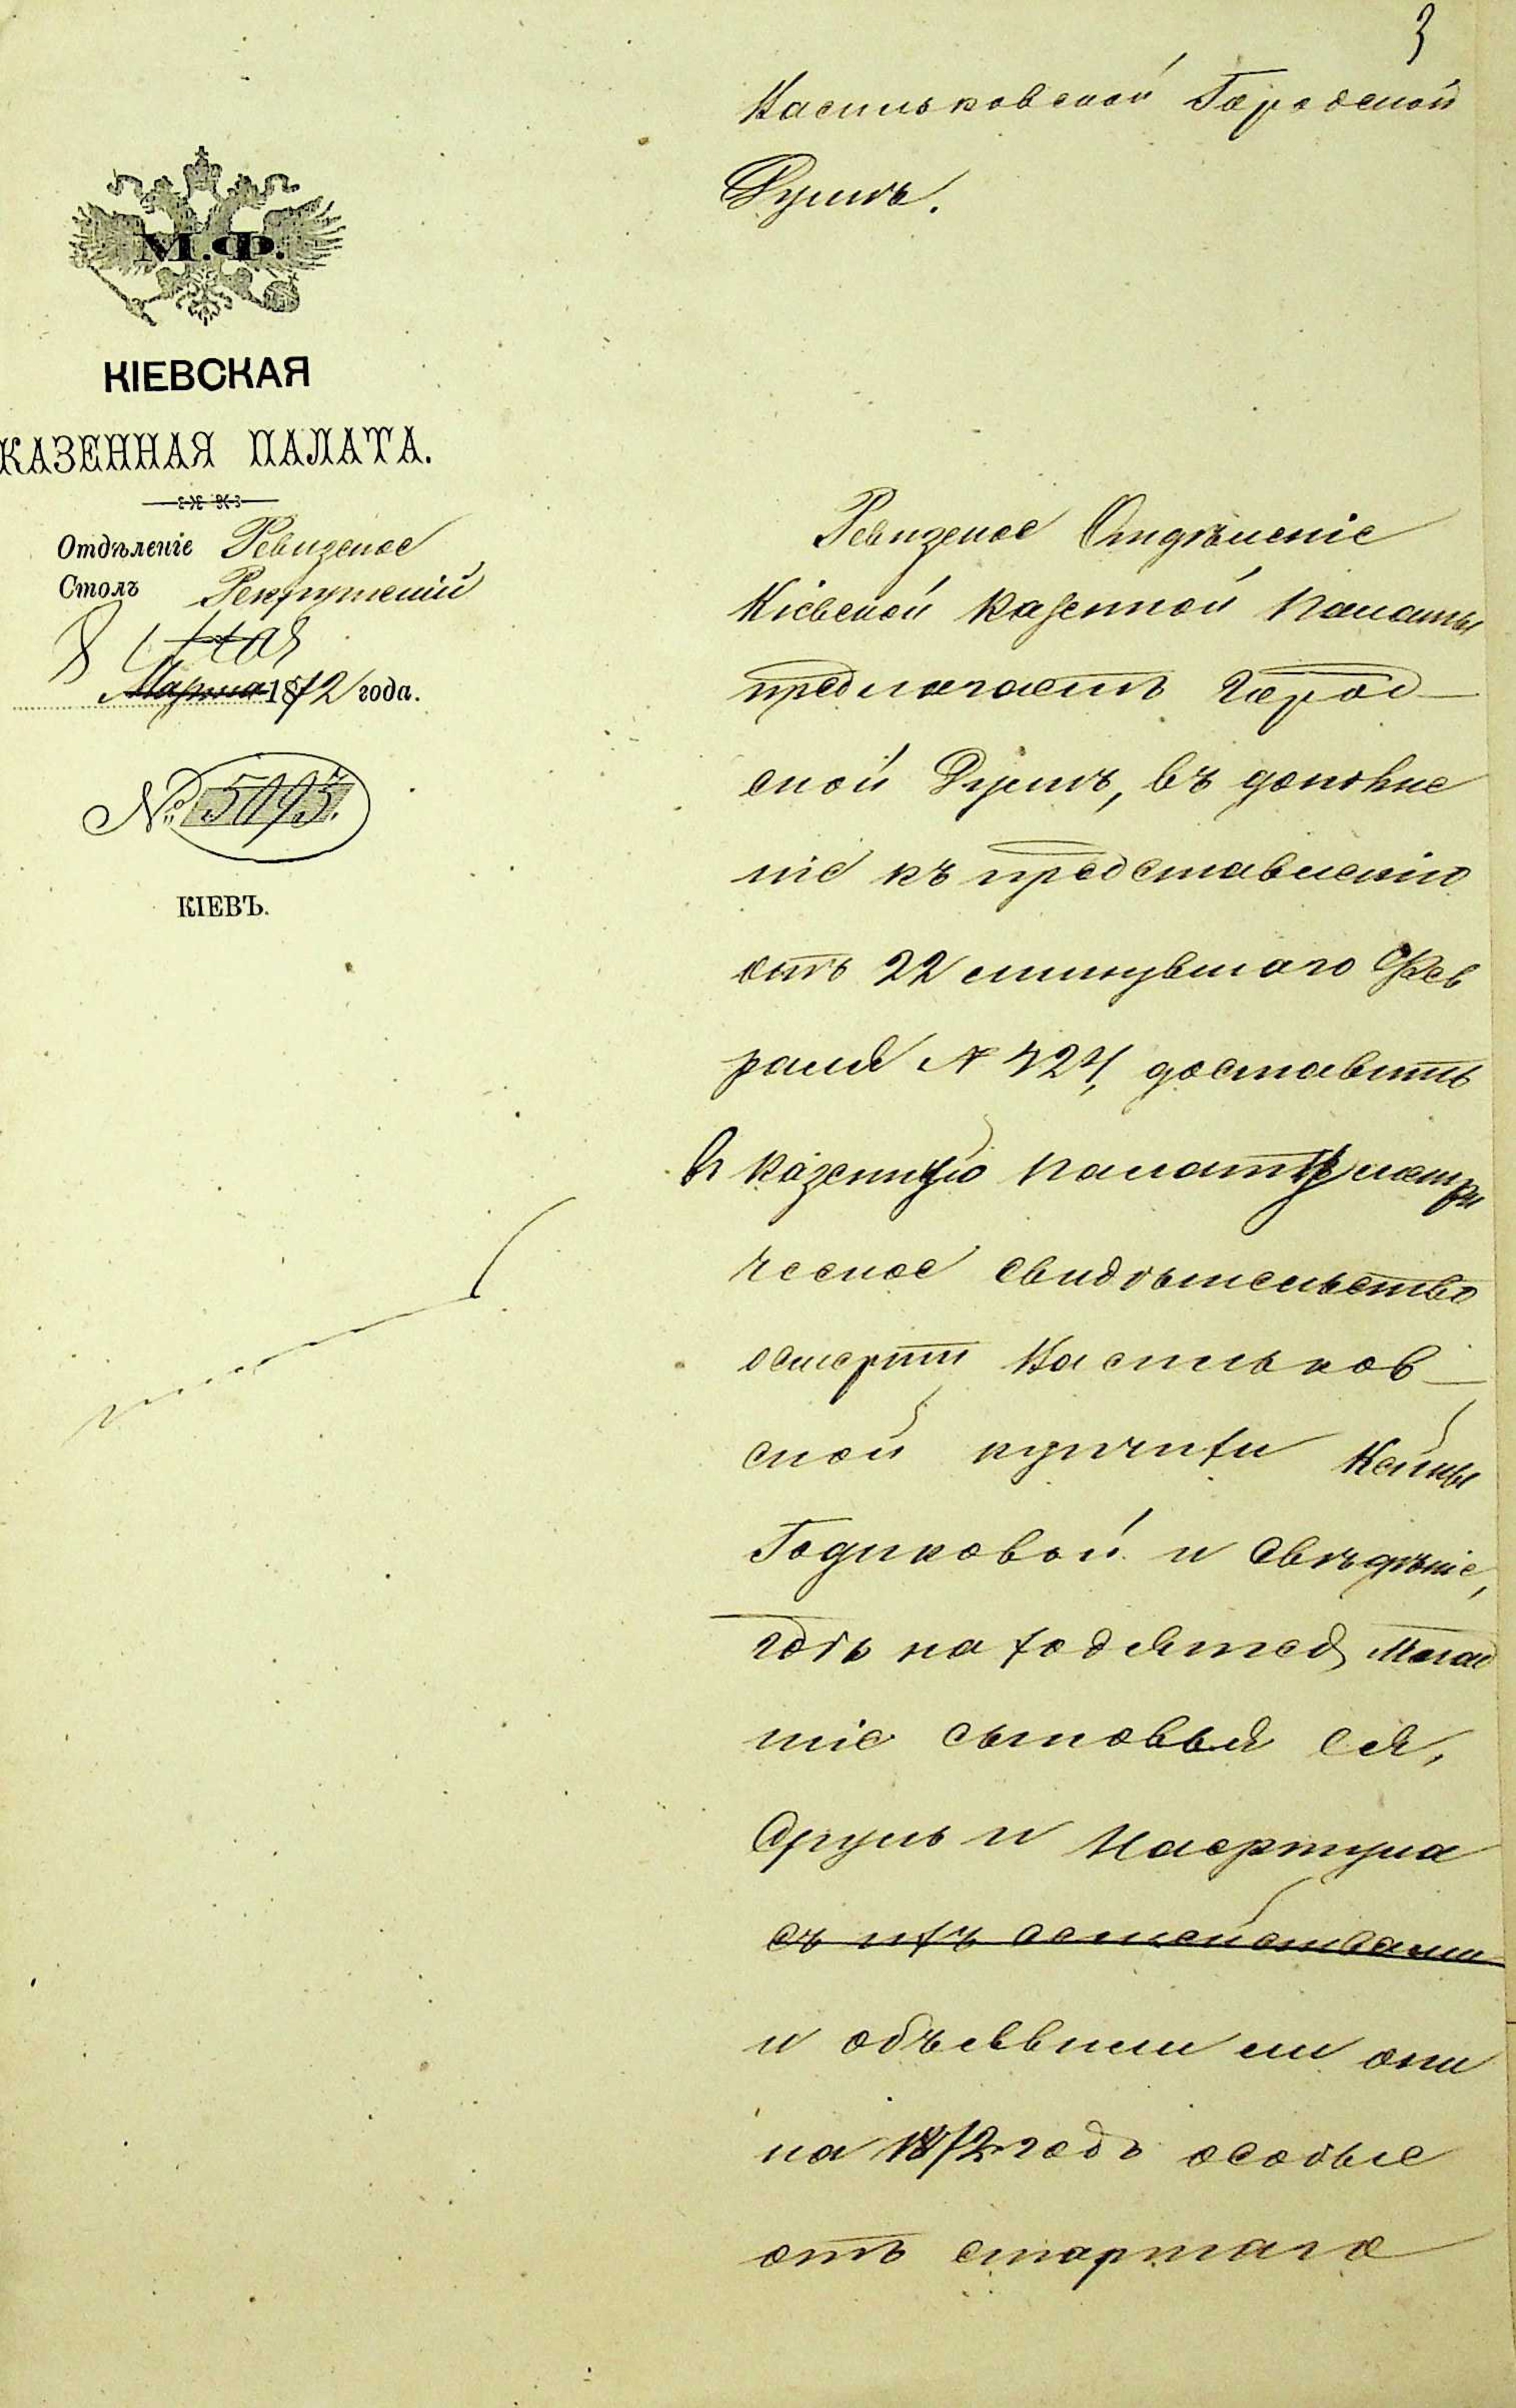 3
Васильковской Городской
Думѣ.
М.Ф.
КІЕВСКАЯ
КАЗЕННАЯ ПАЛАТА.
Отдѣленіе Ревизское
Столъ Рекрутскій
8 Мая
Марта 1872 года.
№ 5093.
КІЕВЪ.
Ревизское Отдѣленіе
Кіевской Казенной Палаты
предлагаетъ Город-
ской Думѣ, въ дополне
ніе къ представленію
отъ 22 минувшаго Фев
раля № 424, доставить
въ Казенную Палату метри
ческое свидѣтельство
о смерти Васильков-
ской купчихи Хейны
Годиковой и свѣдѣніе,
гдѣ находятся млад
шіе сыновья ея,
Сруль и
съ ихъ семействами
и объявили ли они
на 1872 годъ особые
отъ старшаго